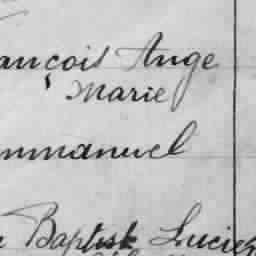 ançois Ange
Marie
mmanuel
Baptiste Lucien